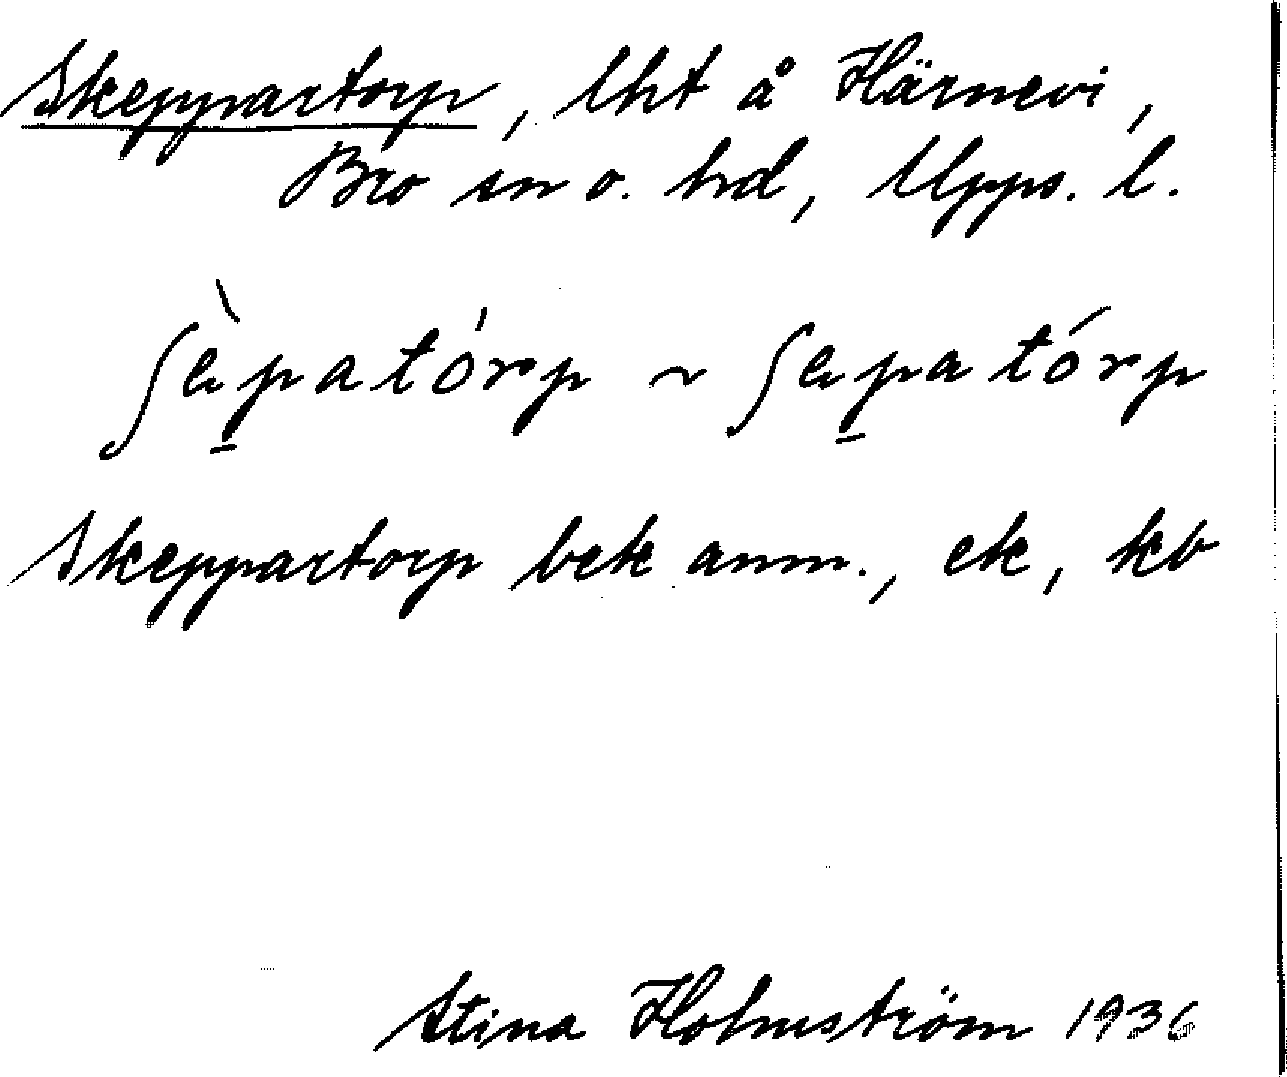 Skeppartorp, lht å Härnevi,
Bro sn o. hd, Upps. l.
ʃàp̱atórp ~ ʃap̱atórp
Skeppartorp bek anm., ek, kb
Stina Holmström 1936